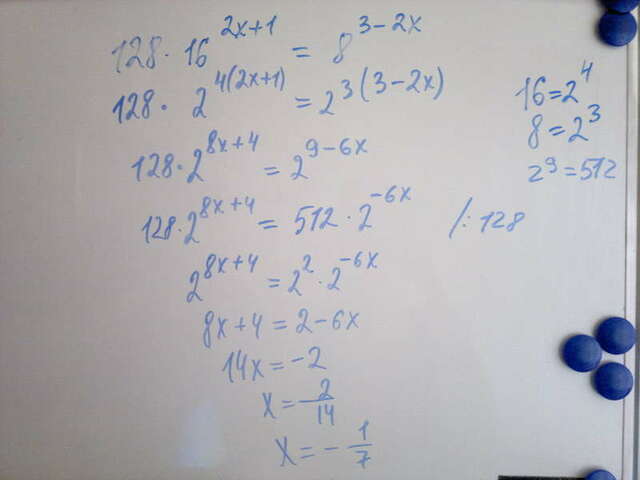 128 · 16^(2x+1) = 8^(3-2x)
128 · 2^(4(2x+1)) = 2^(3(3-2x))
128 · 2^(8x+4) = 2^(9-6x)
128 · 2^(8x+4) = 512 · 2^(-6x) /: 128
2^(8x+4) = 2^2 · 2^(-6x)
8x+4 = 2-6x
14x = -2
x = -2/14
x = -1/7
16 = 2^4
8 = 2^3
2^9 = 512